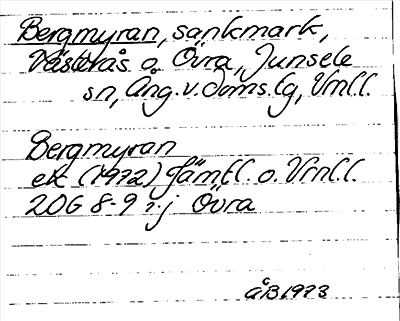 Bergmyran, sankmark,
Västerås o. Övra, Junsele
sn, Ång. v. doms.lg, Vrnl.l.
Bergmyran
ek (1972) Jämtl. o. Vrnl.l.
20G 8-9 i-j Övra
ÅB 1973